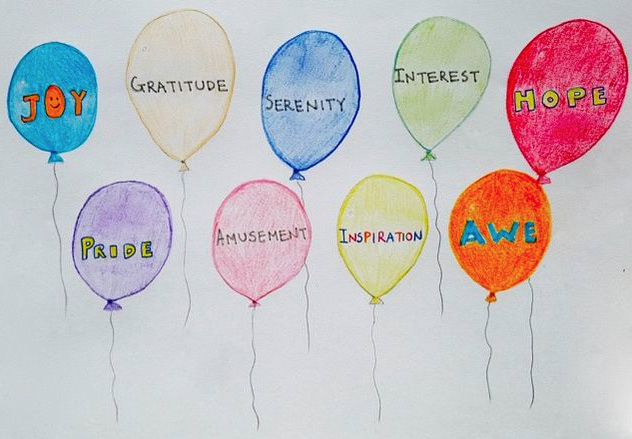 JOY
GRATITUDE
SERENITY
INTEREST
HOPE
PRIDE
AMUSEMENT
INSPIRATION
AWE